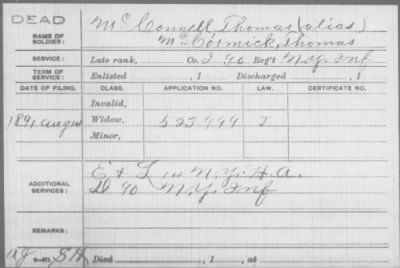 DEAD
McConnell, Thomas (alias)
NAME OF SOLDIER: McCormick, Thomas
SERVICE: Late rank, Co. I 90 Reg't N.Y. Inf
TERM OF SERVICE: Enlisted , 1 Discharged , 1
DATE OF FILING. CLASS. APPLICATION NO. LAW. CERTIFICATE NO.
Invalid,
1891 Aug 14 Widow, 523999 J
Minor,
E & L 14 N.Y. H.A.
ADDITIONAL SERVICES: D 90 N.Y. Inf
REMARKS:
Died , 1 , at